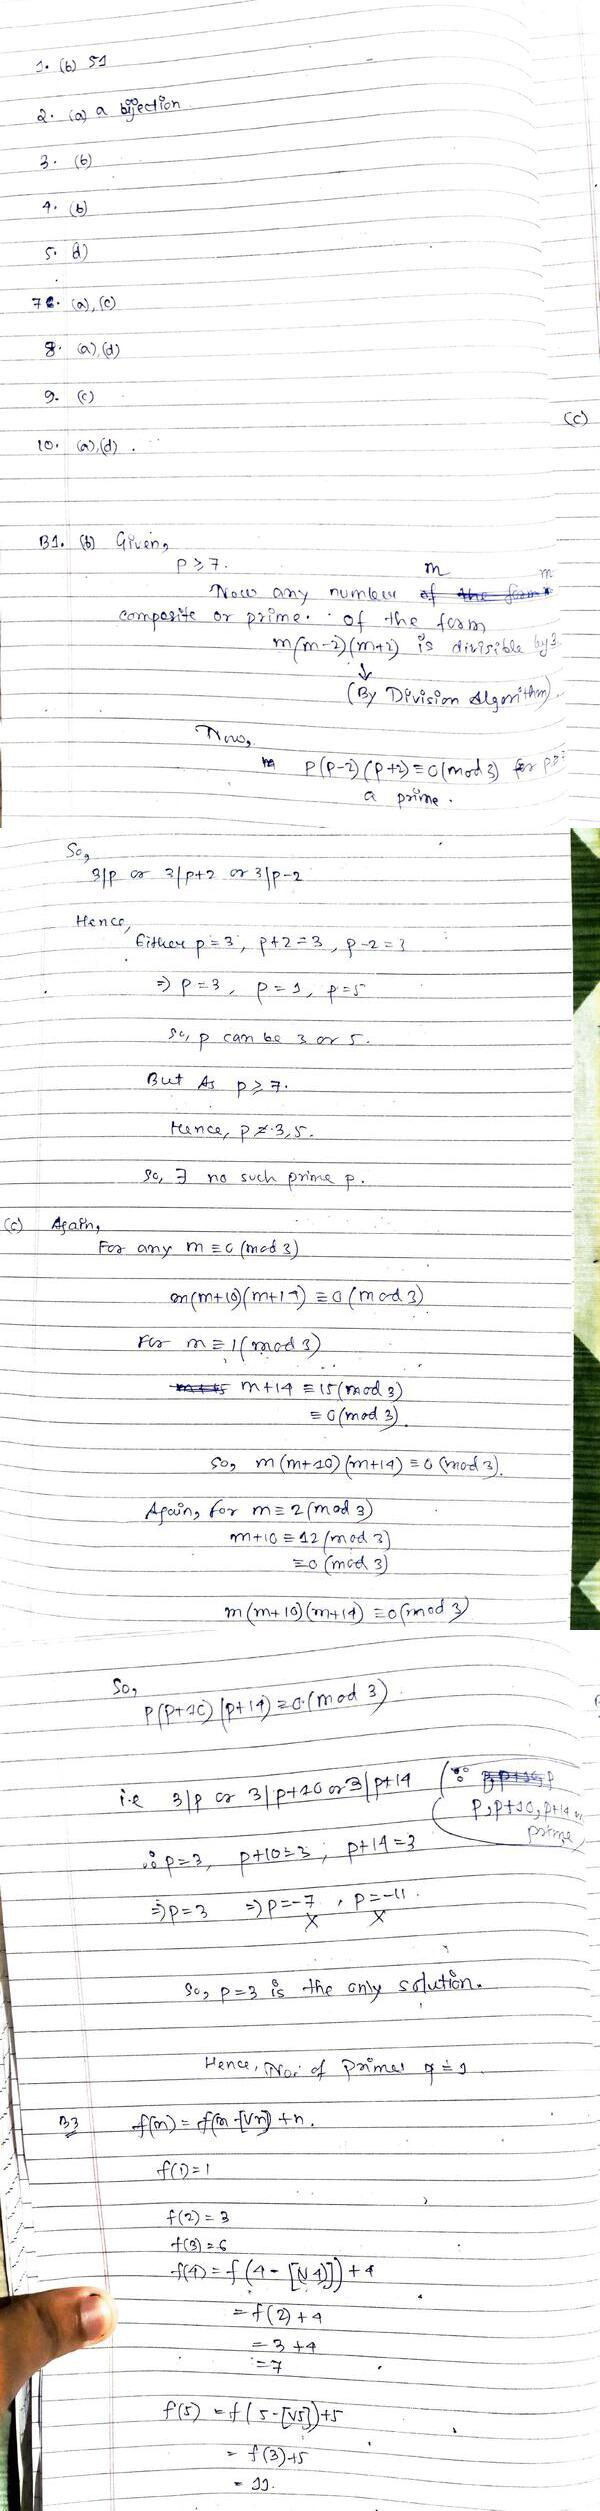 1. (b) 51
2. (a) a bijection
3. (b)
4. (b)
5. (d)
7. (a), (c)
8. (a), (d)
9. (c)
(c)
10. (a), (d).
B1. (b) Given,
p ≥ 7.
Now any number m
composite or prime. of the form
m(m-2)(m+2) is divisible by 3
↓
(By Division Algorithm).
Now,
p(p-2)(p+2) ≡ 0 (mod 3) for
a prime.
So,
3|p or 3|p+2 or 3|p-2
Hence,
Either p=3, p+2=3, p-2=3
⇒ p=3, p=1, p=5
So, p can be 3 or 5.
But As p ≥ 7.
Hence, p ≠ 3,5.
So, ∃ no such prime p.
(c) Again,
For any m ≡ 0 (mod 3)
m(m+10)(m+14) ≡ 0 (mod 3)
For m ≡ 1 (mod 3)
m+14 ≡ 15 (mod 3)
≡ 0 (mod 3).
So, m(m+10)(m+14) ≡ 0 (mod 3).
Again, for m ≡ 2 (mod 3)
m+10 ≡ 12 (mod 3)
≡ 0 (mod 3)
m(m+10)(m+14) ≡ 0 (mod 3)
So,
p(p+10)(p+14) ≡ 0 (mod 3).
i.e 3|p or 3|p+10 or 3|p+14 (∵
p, p+10, p+14
prime)
∴ p=3, p+10=3, p+14=3
⇒ p=3 ⇒ p=-7, p=-11.
X X
So, p=3 is the only solution.
Hence, No. of primes = 1
B3 f(n) = f(n-[√n]) + n.
f(1)=1
f(2)=3
f(3)=6
f(4) = f(4-[√4]) + 4
= f(2)+4
= 3+4
= 7
f(5) = f(5-[√5])+5
= f(3)+5
= 11.